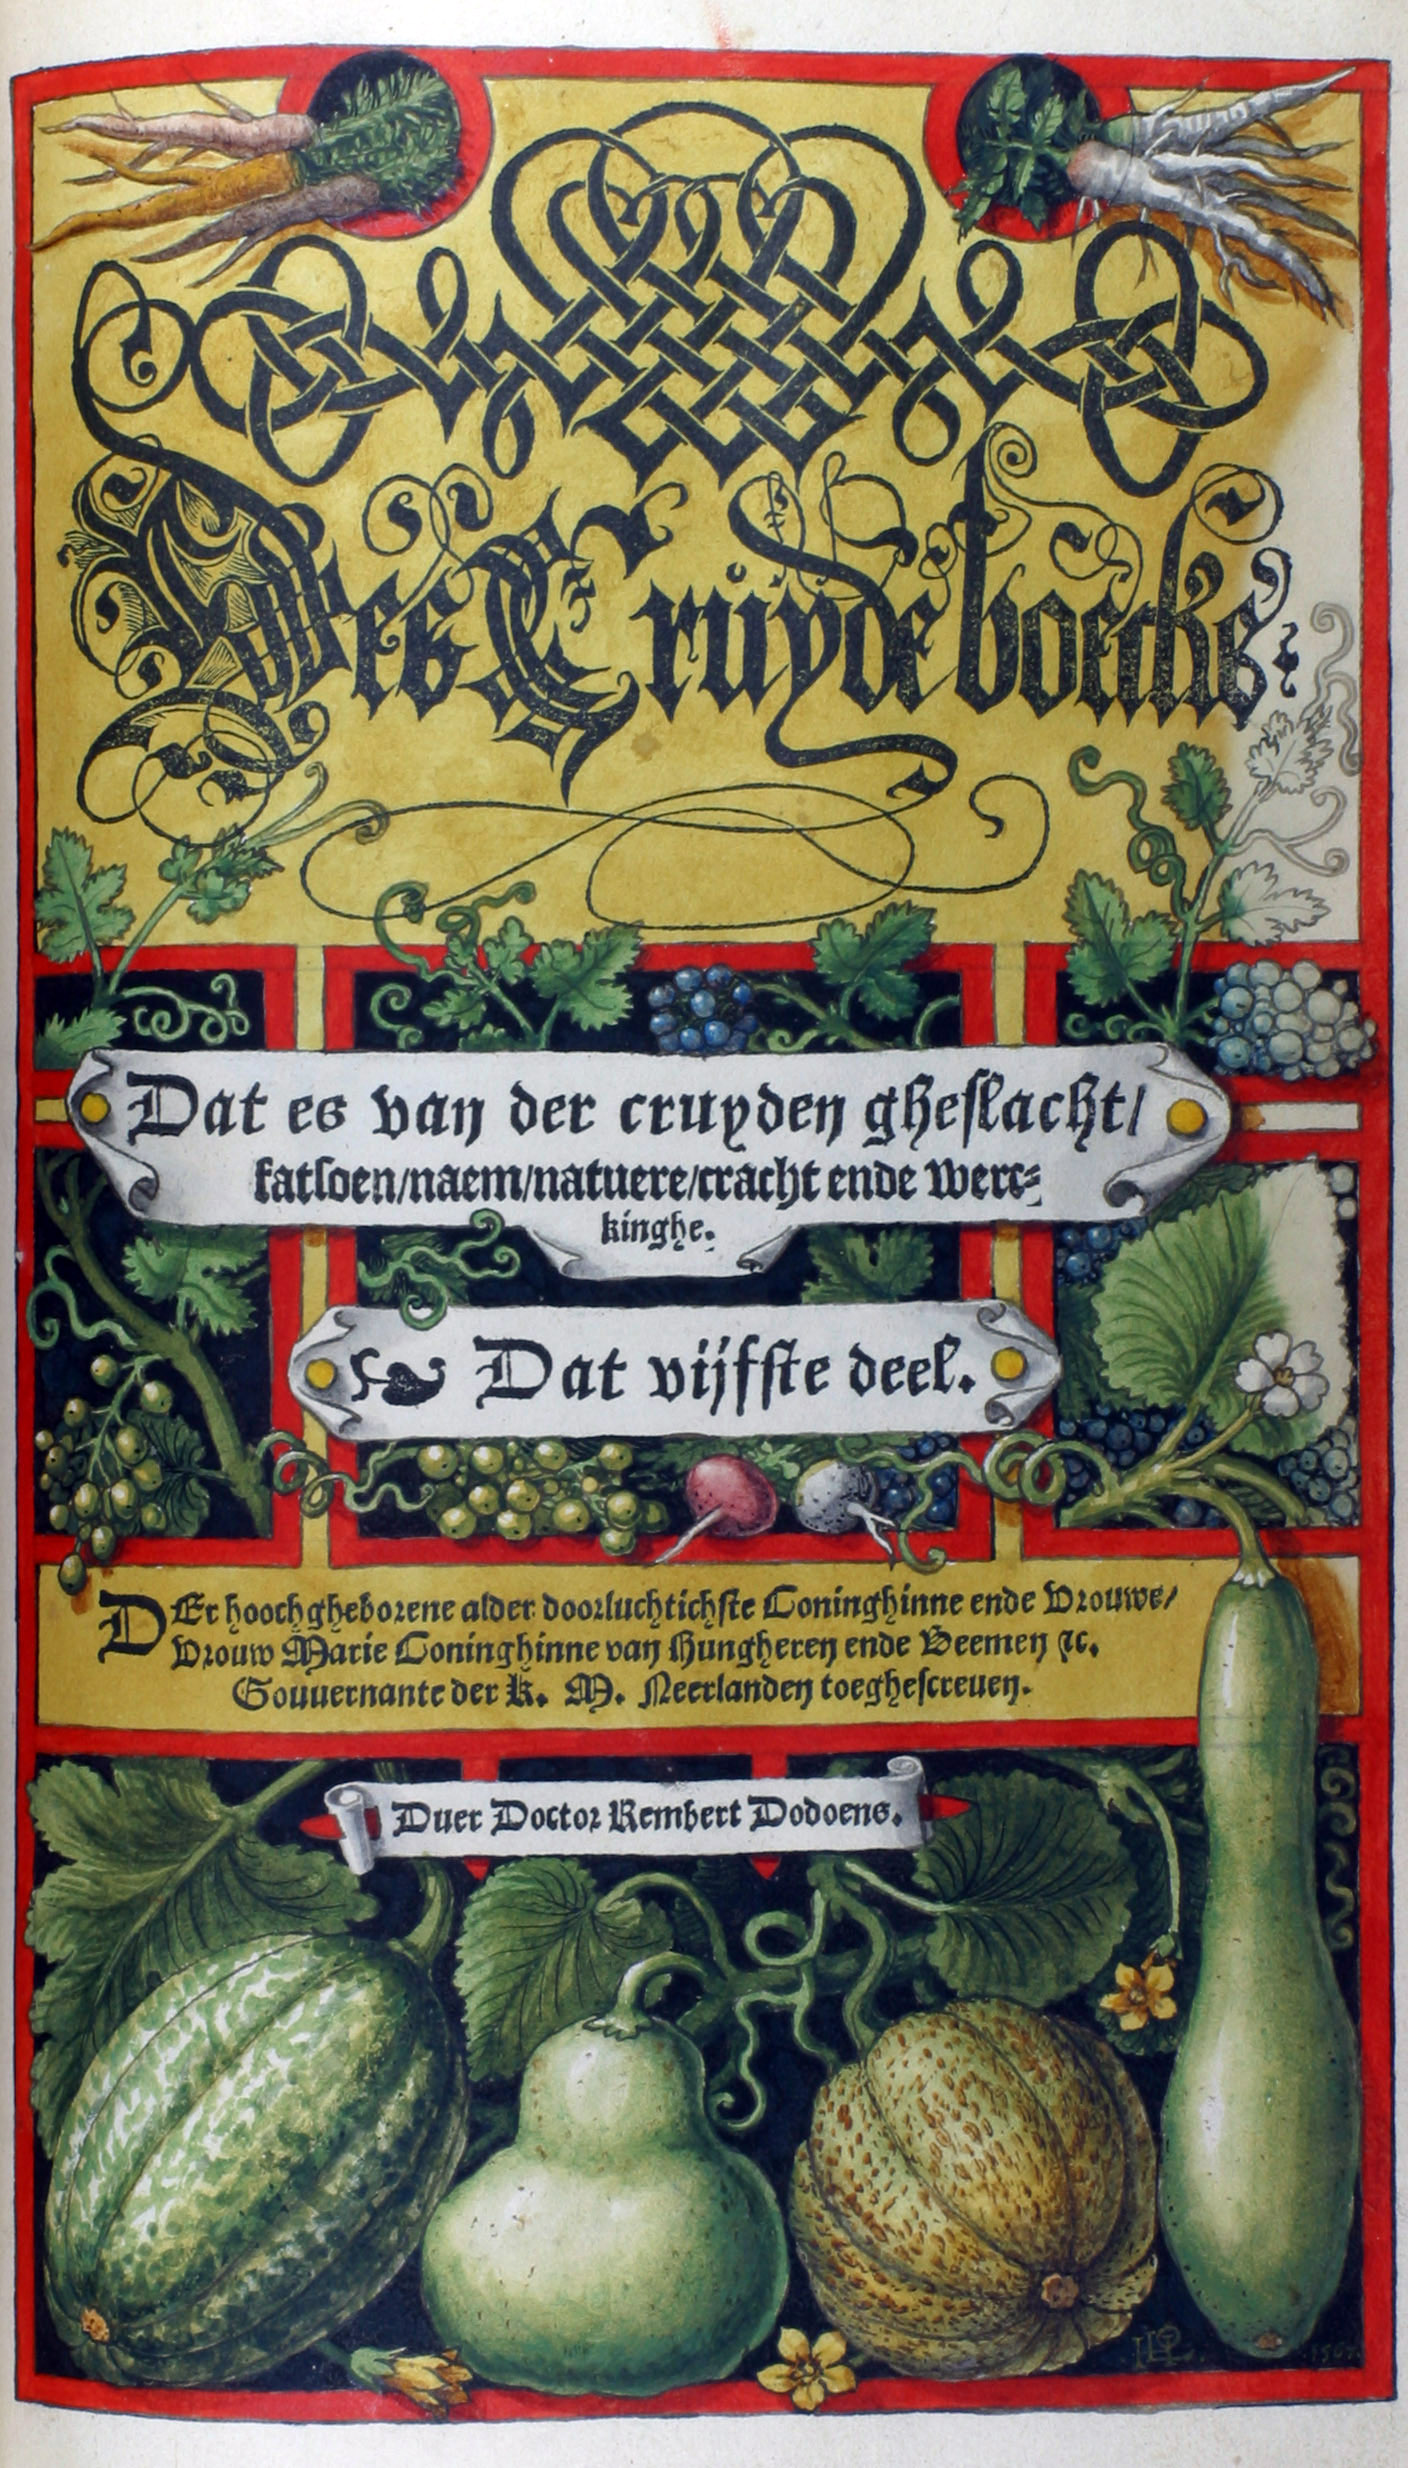 Des Cruydeboeckx
Dat es van der cruyden gheslacht/
fatsoen/naem/natuere/cracht ende werc⸗
kinghe.
Dat vijfste deel.
DEr hoochgheborene alder doorluchtichste Coninghinne ende Vrouwe/
Vrouw Marie Coninghinne van Hungheren ende Beemen ⁊c.
Gouuernante der K. M. Neerlanden toeghescreuen.
Duer Doctor Rembert Dodoens.